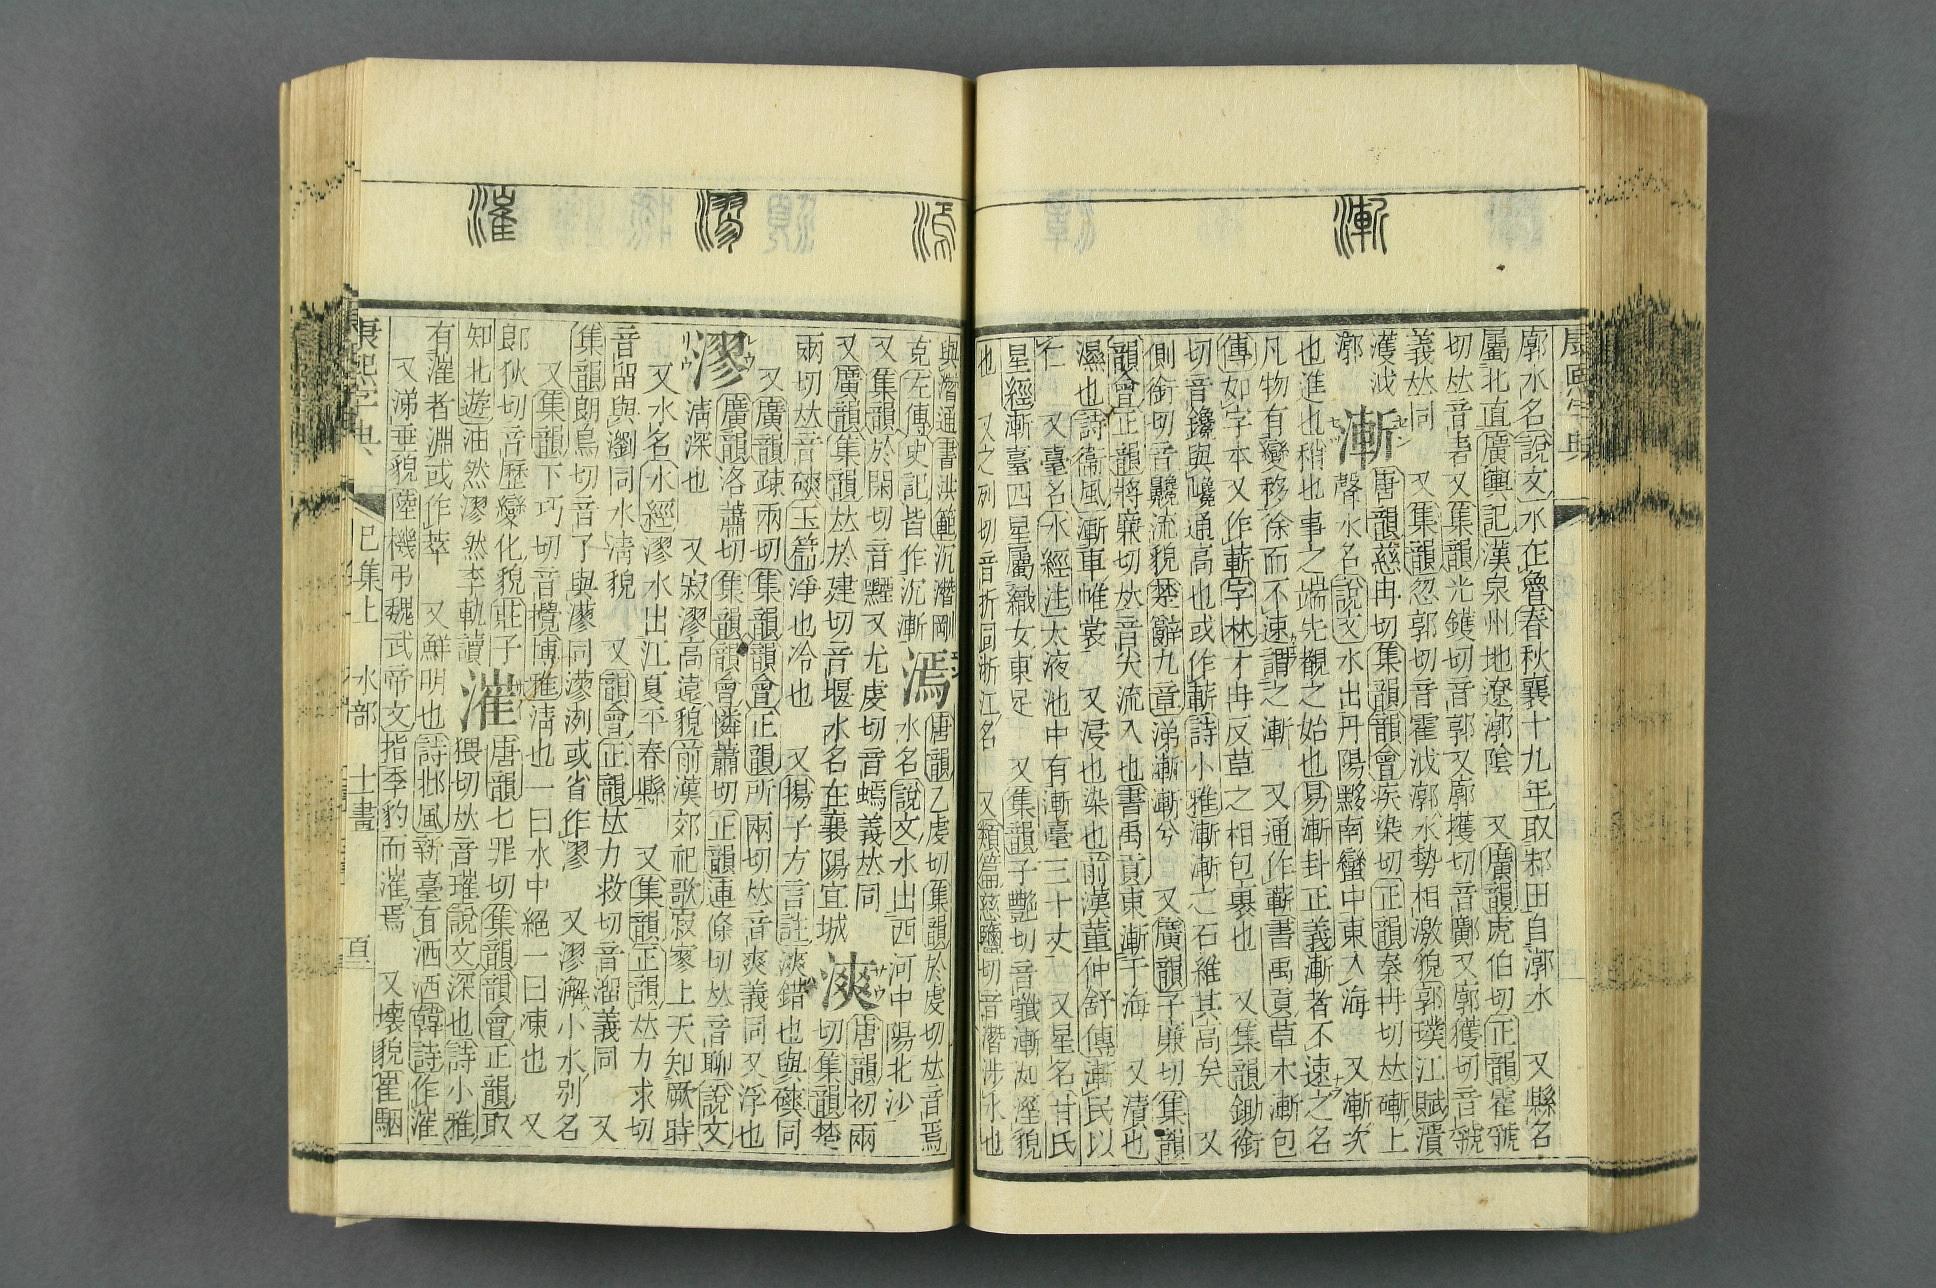 漸
廓水名說文水在魯春秋襄十九年取邾田自漷水　又縣名
屬北直廣輿記漢泉州地遼漷陰　又廣韻虎伯切正韻霍虢
切𠀤音𧧻又集韻光鑊切音郭又廓擭切音𠠝又廓獲切音虢
義𠀤同　又集韻忽郭切音霍㳦漷水勢相激貌郭璞江賦潰
濩㳦
漷
漸
唐韻慈冉切集韻韻會疾染切正韻秦冉切𠀤磛上
聲水名說文水出丹陽黟南蠻中東入海　又漸次
也進也稍也事之端先覩之始也易漸卦正義漸者不速之名
凡物有變移徐而不速謂之漸　又通作蔪書禹貢草木漸包
傳如字本又作蔪字林才冉反草之相包裹也　又集韻鋤銜
切音鑱與巉通高也或作蔪詩小雅漸漸之石維其高矣　又
側銜切音𩥣流貌楚辭九章涕漸漸兮　又廣韻子廉切集韻
韻會正韻將廉切𠀤音尖流入也書禹貢東漸于海　又漬也
濕也詩衞風漸車帷裳　又浸也染也前漢董仲舒傳漸民以
仁　又臺名水經注太液池中有漸臺三十丈　又星名甘氏
星經漸臺四星屬織女東足　又集韻子艷切音㦰漸洳溼貌
也　又之列切音折同浙江名　又類篇慈鹽切音潛涉水也
漹
漻
漼
與潛通書洪範沉潛剛
克左傳史記皆作沉漸
漹
唐韻乙虔切集韻於虔切𠀤音焉
水名說文水出西河中陽北沙
又集韻於閑切音黫又尤虔切音嫣義𠀤同
又廣韻集韻𠀤於建切音堰水名在襄陽宜城
漺
唐韻初兩
切集韻楚
兩切𠀤音磢玉篇淨也冷也　又揚子方言註漺錯也與磢同
又廣韻疎兩切集韻韻會正韻所兩切𠀤音爽義同又浮也
漻
廣韻洛蕭切集韻韻會憐蕭切正韻連條切𠀤音聊說文
淸深也　又寂漻高遠貌前漢郊祀歌寂漻上天知厥時
又水名水經漻水出江夏平春縣　又集韻正韻𠀤力求切
音留與瀏同水淸貌　又韻會正韻𠀤力救切音溜義同　又
集韻朗鳥切音了與㵳同㵳洌或省作漻　又漻澥小水別名
又集韻下巧切音攪博雅淸也一曰水中絕一曰凍也　又
郎狄切音歷變化貌莊子
知北遊油然漻然李軌讀
漼
唐韻七罪切集韻韻會正韻取
猥切𠀤音璀說文深也詩小雅
有漼者淵或作萃　又鮮明也詩邶風新臺有洒洒韓詩作漼
又涕垂貌陸機弔魏武帝文指季豹而漼焉　又壞貌崔駰
康熙字典
巳集上　水部　十一畫